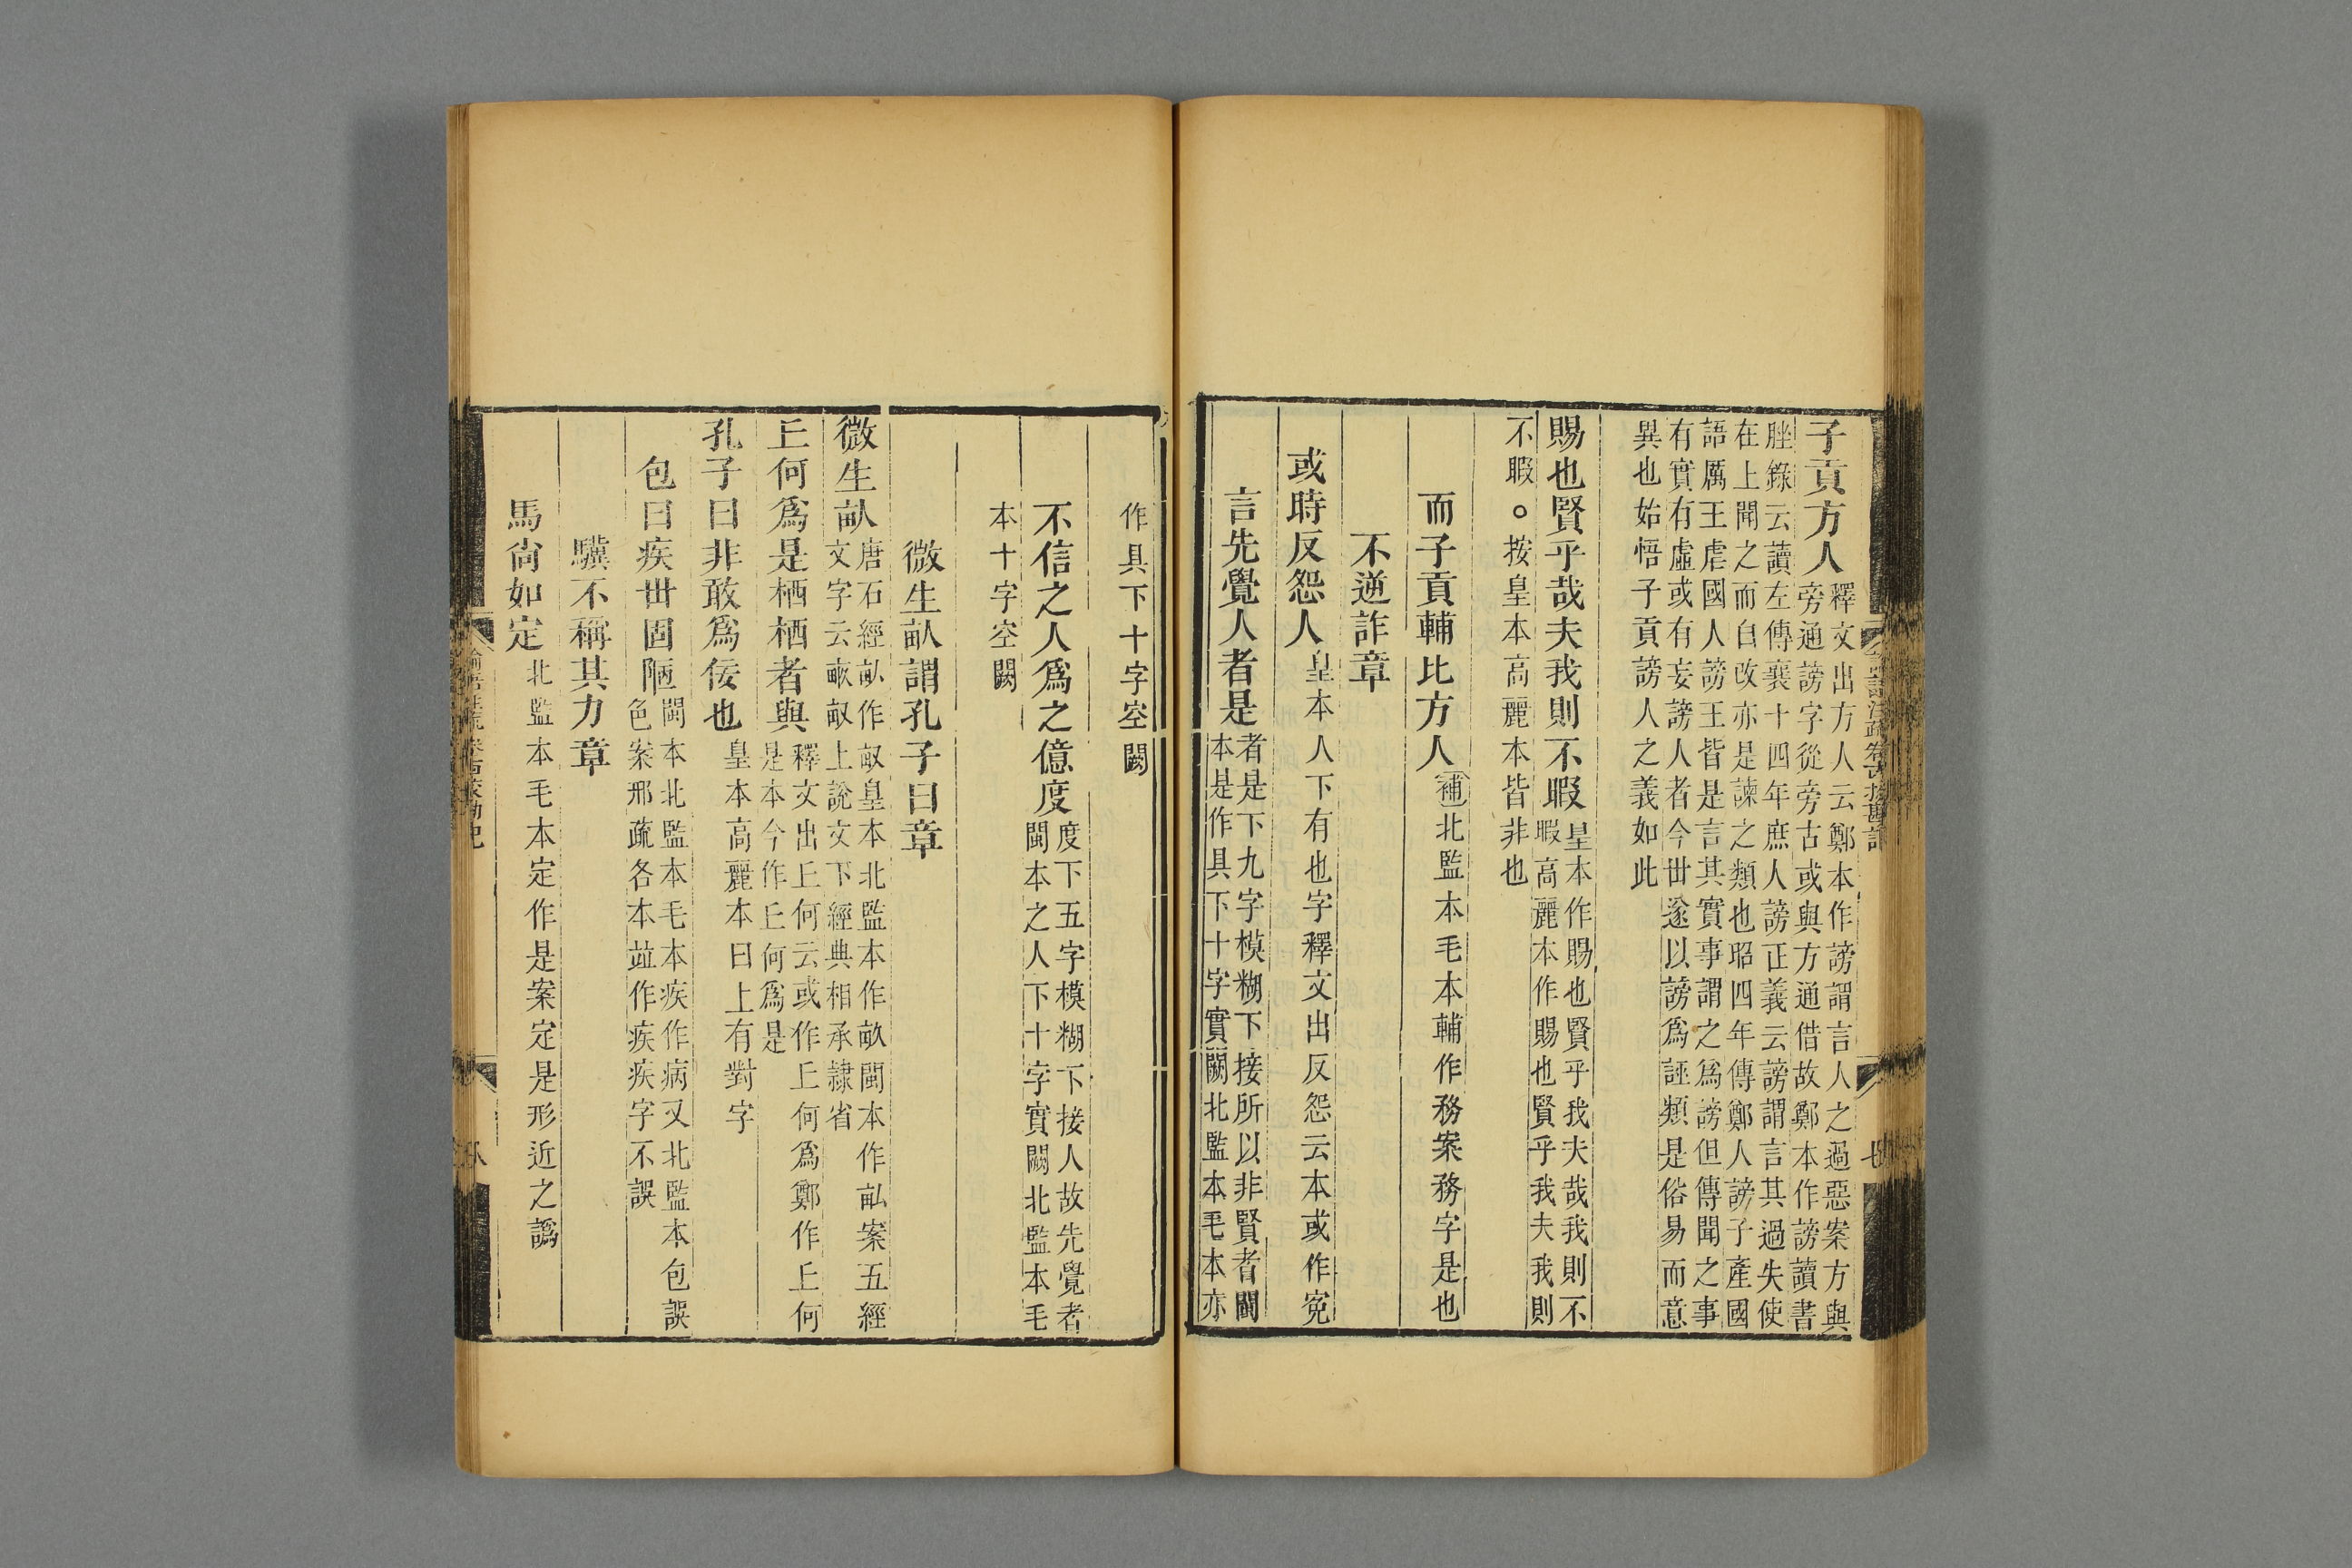 子貢方人釋文出方人云鄭本作謗謂言人之過惡案方與
旁通謗字從旁古或與方通借故鄭本作謗讀書
脞錄云讀左傳襄十四年庶人謗正義云謗謂言其過失使
在上聞之而自改亦是諫之類也昭四年傳鄭人謗子產國
語厲王虐國人謗王皆是言其實事謂之爲謗但傳聞之事
有實有虛或有妄謗人者今世遂以謗爲誣類是俗易而意
異也始悟子貢謗人之義如此
賜也賢乎哉夫我則不暇皇本作賜也賢乎我夫哉我則不
暇高麗本作賜也賢乎我夫我則
不暇。按皇本高麗本皆非也
而子貢輔比方人補北監本毛本輔作務案務字是也
不逆詐章
或時反怨人皇本人下有也字釋文出反怨云本或作寃
言先覺人者是者是下九字模糊下接所以非賢者閩
本是作具下十字實闕北監本毛本亦
作具下十字空闕
不信之人爲之億度度下五字模糊下接人故先覺者
閩本之人下十字實闕北監本毛
本十字空闕
微生畝謂孔子曰章
微生畝唐石經畝作畞皇本北監本作畝閩本作畆案五經
文字云畮畞上說文下經典相承隸省
丘何爲是栖栖者與釋文出丘何云或作丘何爲鄭作丘何
是本今作丘何爲是
孔子曰非敢爲佞也皇本高麗本曰上有對字
包曰疾世固陋閩本北監本毛本疾作病又北監本包誤
色案邢疏各本竝作疾疾字不誤
驥不稱其力章
馬尙如定北監本毛本定作是案定是形近之譌
論語注疏卷十四校勘記
七
論語注疏卷十四校勘記
八